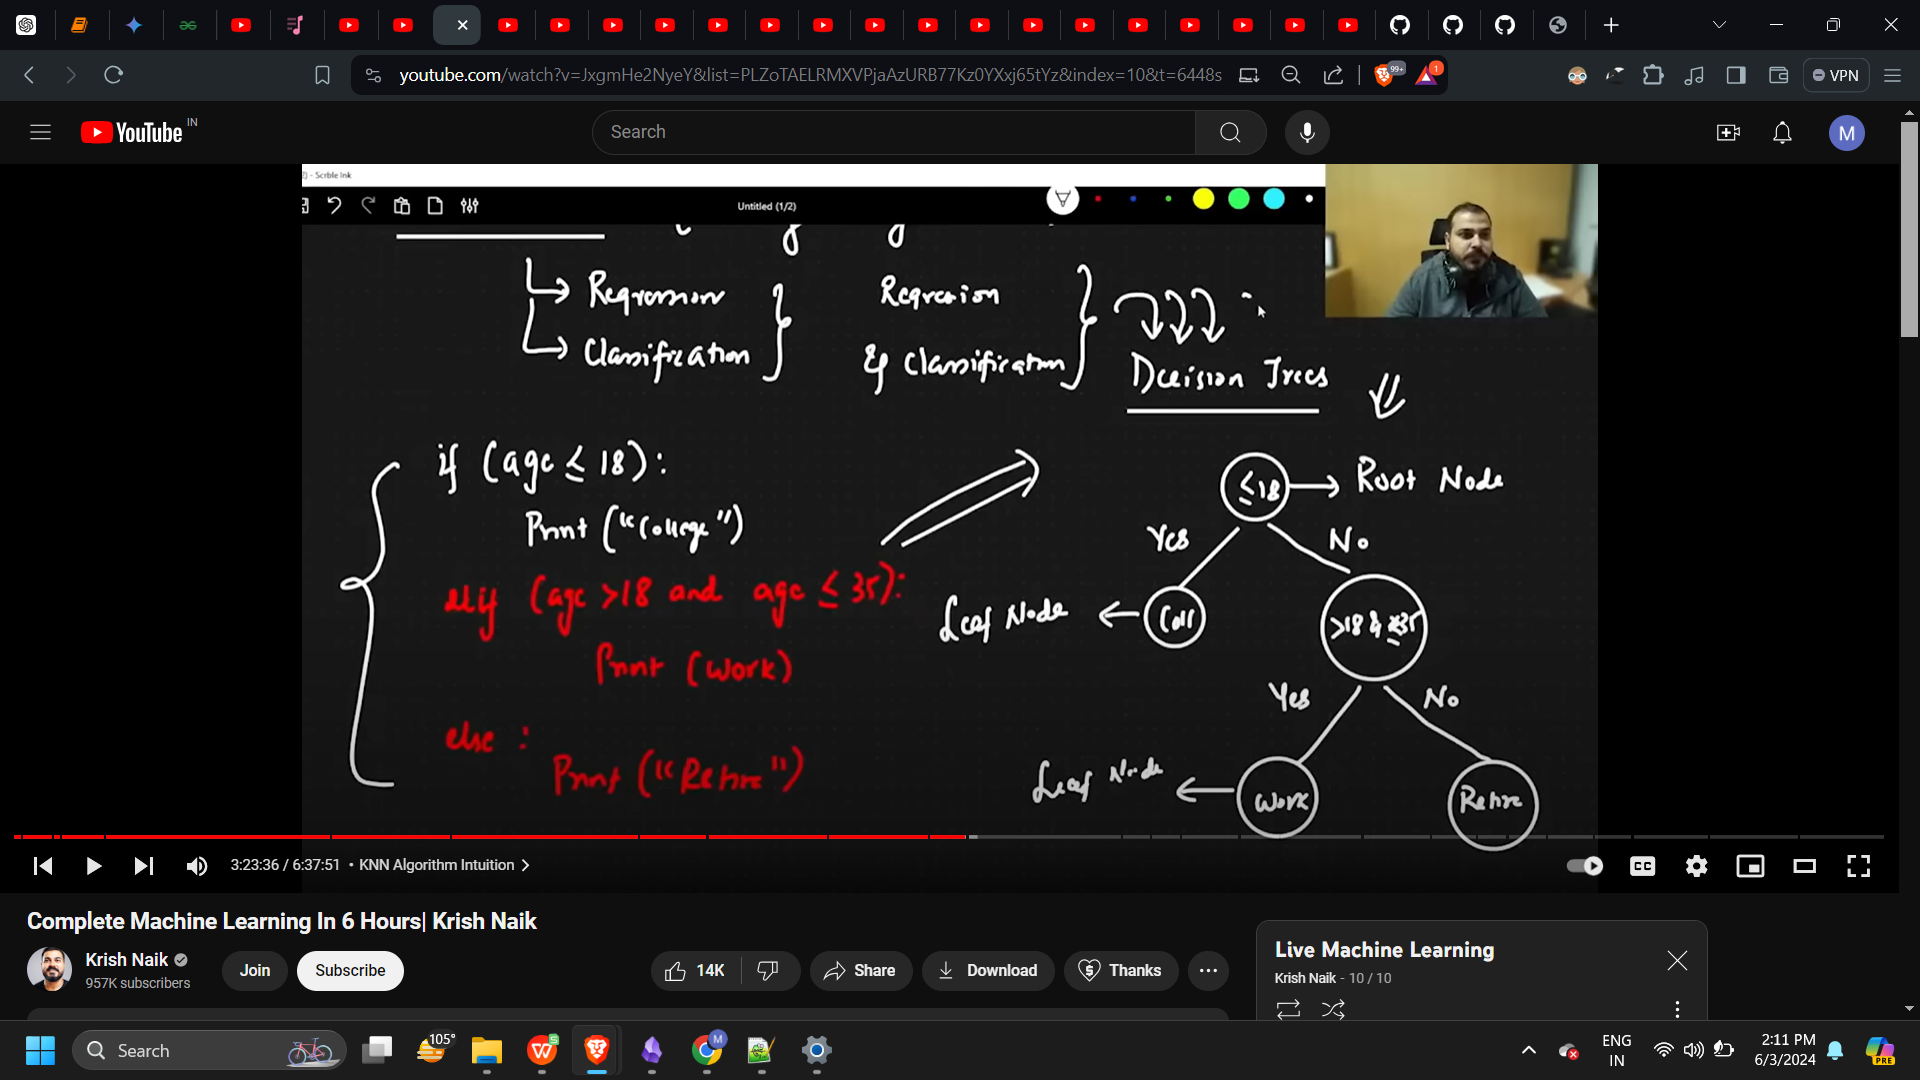 youtube.com/watch?v=JxgmHe2NyeY&list=PLZoTAELRMXVPjaAzURB77Kz0YXxj65tYz&index=10&t=6448s
99+
1
VPN
YouTube IN
Search
M
- Scrble Ink
Untitled (1/2)
Regression
Classification
Regression
& Classification
Decision Trees
if (age ≤ 18):
Print ("College")
elif (age >18 and age ≤ 35):
Print (Work)
else :
Print ("Retire")
≤18
Root Node
Yes
No
Leaf Node
Coll
>18 & ≤35
Yes
No
Leaf Node
Work
Retire
3:23:36 / 6:37:51 • KNN Algorithm Intuition
CC
Complete Machine Learning In 6 Hours| Krish Naik
Krish Naik
957K subscribers
Join
Subscribe
14K
Share
Download
Thanks
Live Machine Learning
Krish Naik - 10 / 10
Search
105°
W
S
M
ENG
IN
2:11 PM
6/3/2024
PRE